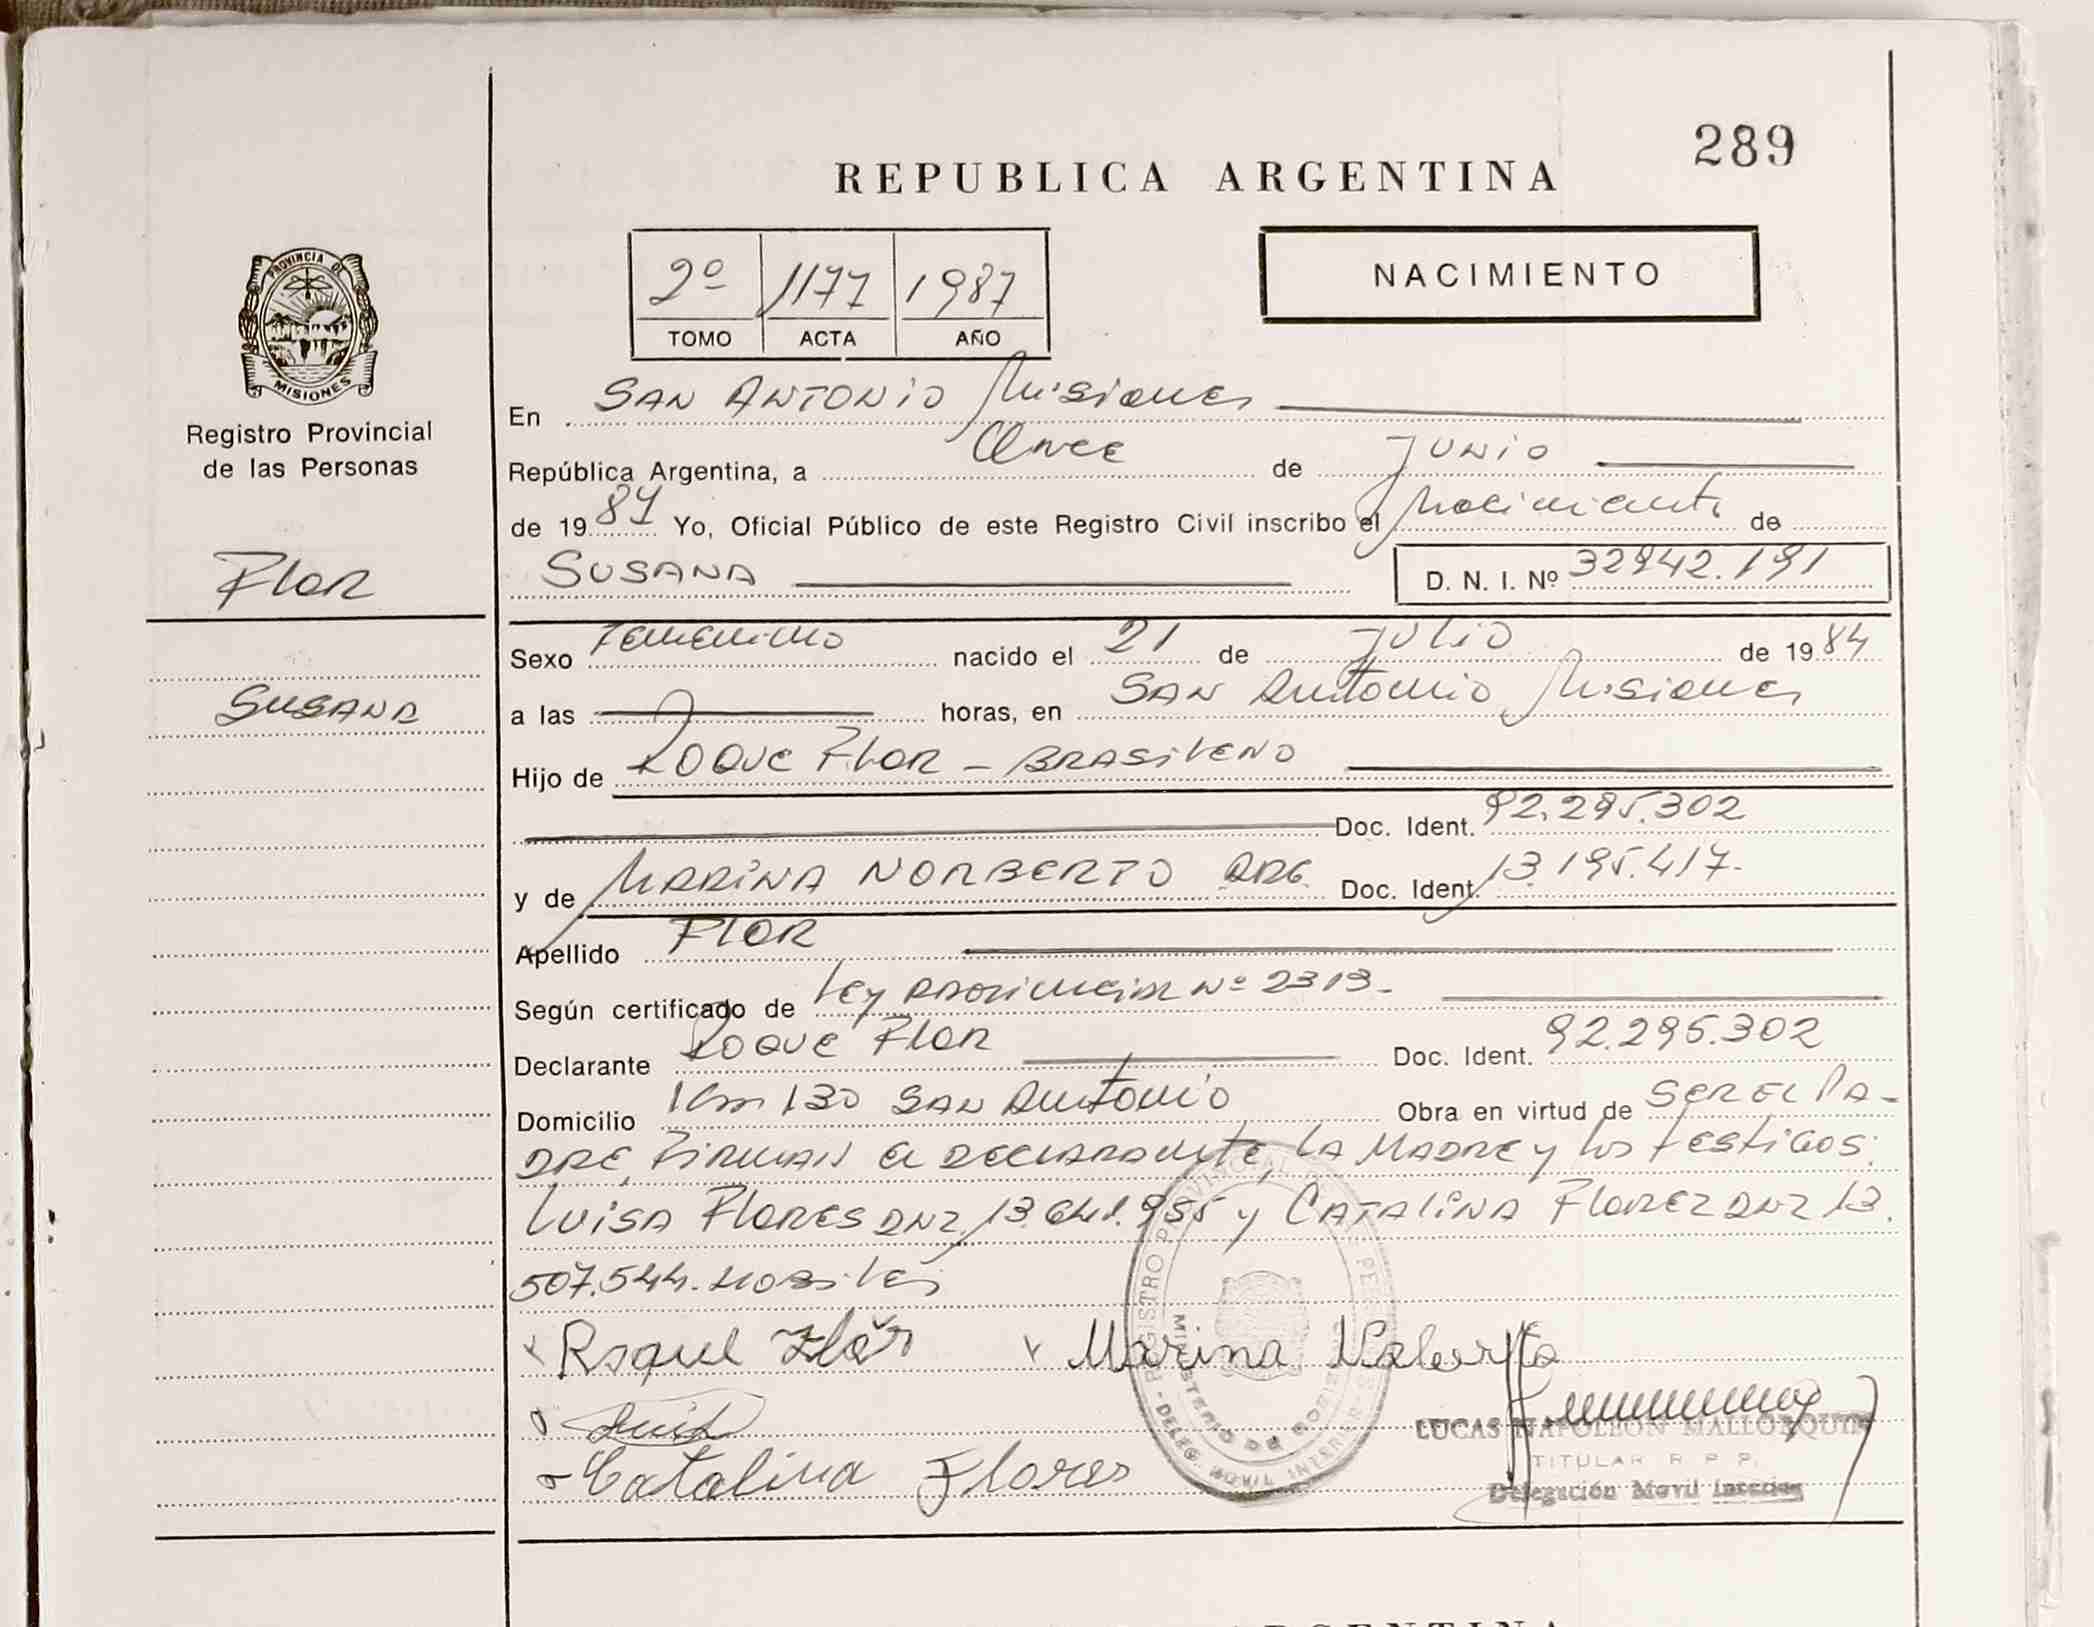 289
REPUBLICA ARGENTINA
2º 1177 1987
TOMO ACTA AÑO
NACIMIENTO
PROVINCIA DE
MISIONES
Registro Provincial
de las Personas
Flor
Susana
En San Antonio Misiones
República Argentina, a Once de Junio
de 1987 Yo, Oficial Público de este Registro Civil inscribo el Nacimiento de
Susana D. N. I. Nº 32942.191
Sexo Femenino nacido el 21 de Julio de 1984
a las horas, en San Antonio Misiones
Hijo de Roque Flor - Brasileno
Doc. Ident. 92.295.302
y de Marina Norberto Arg. Doc. Ident. 13.195.417.-
Apellido Flor
Según certificado de Ley Provincial Nº 2313.-
Declarante Roque Flor Doc. Ident. 92.295.302
Domicilio Km 130 San Antonio Obra en virtud de ser el pa-
dre, firman el declarante, la madre y los testigos:
Luisa Flores DNI 13. 985 y Catalina Florez DNI 13.
507.544. hábiles
Roque Flor Marina Norberto
Catalina Flores
REGISTRO PROVINCIAL DE PERSONAS
MINISTERIO DE GOBIERNO
DELEG. MOVIL INTERIOR
LUCAS NAPOLEON MALLORQUIN
TITULAR R. P. P.
Delegación Movil Interior